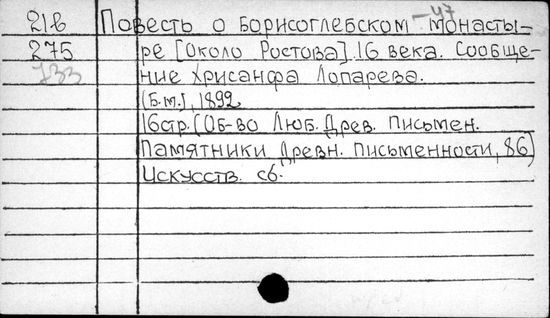 21в Повесть о Борисоглебском монасты-
275 ре [Около Ростова]. 16 века. Сообще-
733 ние Хрисанфа Лопарева.
[Б.м.], 1892
16стр. (Об-во Люб. Древ. Письмен.
Памятники Древн. Письменности, 86)
Искусств. сб.